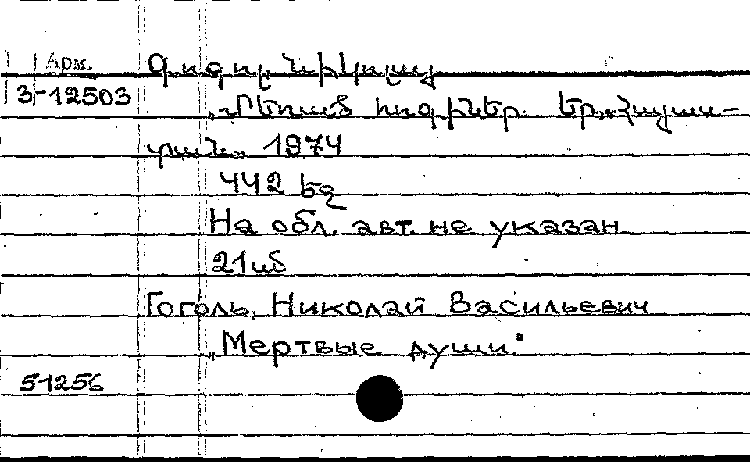 Арм.
Գոգոլ Նիկոլայ
3-12503
„Մեռած հոգիներ. Եր., Հայաս-
տան.. 1974
442 էջ
На обл. авт. не указан
21սմ
Гоголь, Николай Васильевич
„Мертвые души"
51256